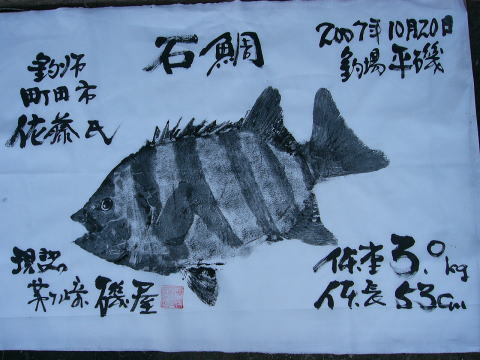 石鯛
2007年10月20日
釣場 平磯
釣師
町田市
佐藤氏
現認
茅ヶ崎 磯屋
体重 3.0kg
体長 53cm